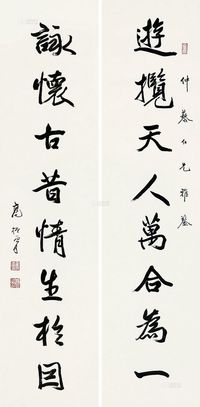 遊攬天人萬合為一
仲蔡仁兄雅鑒
詠懷古昔情生於目